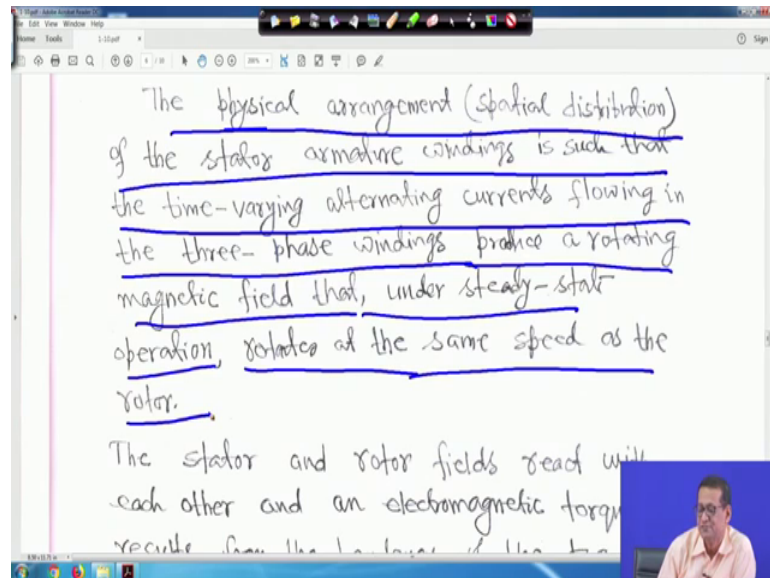 1-10.pdf
Edit View Window Help
Home Tools 1-10.pdf Sign
The physical arrangement (spatial distribution)
of the stator armature windings is such that
the time-varying alternating currents flowing in
the three-phase windings produce a rotating
magnetic field that, under steady-stat
operation, rotates at the same speed as the
rotor.
The stator and rotor fields react with
each other and an electromagnetic torqu
results from the